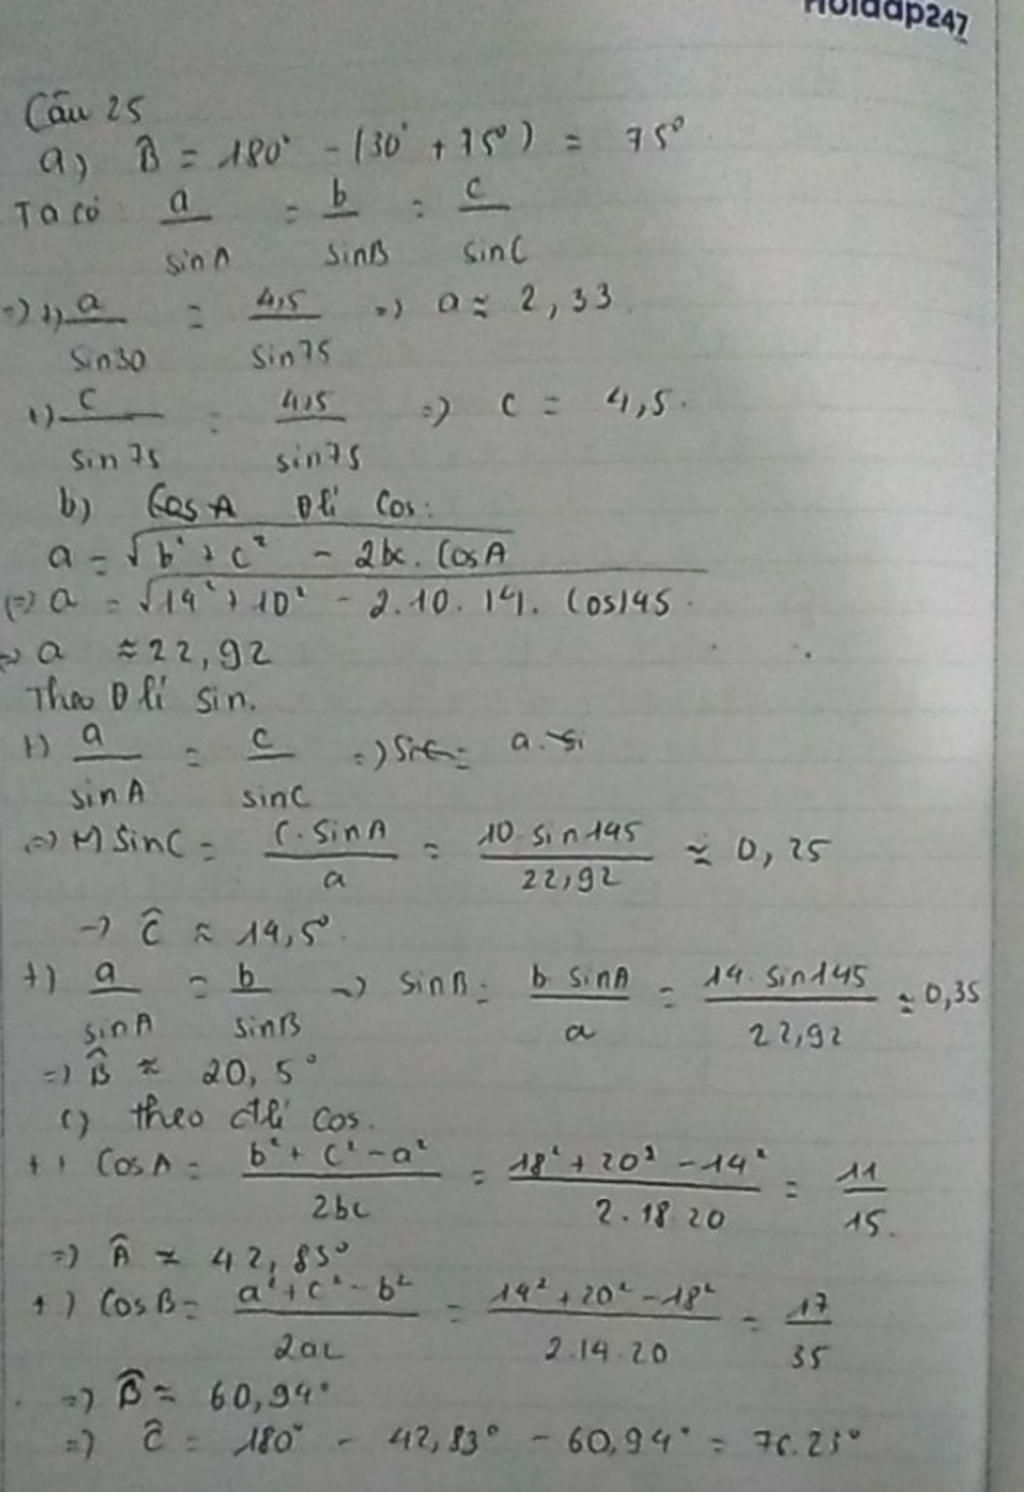 Hoidap247
Câu 25
a) B̂ = 180° - (30° + 75°) = 75°
Ta có a/sinA = b/sinB = c/sinC
=> +) a/sin30 = 4,5/sin75 => a ≈ 2,33.
+) c/sin75 = 4,5/sin75 => c = 4,5.
b) Đlí Cos:
a = √(b² + c² - 2bc. CosA)
(=) a = √(14² + 10² - 2.10.14. Cos145)
=> a ≈ 22,92
Theo Đlí sin.
+) a/sinA = c/sinC =>
=> SinC = c.sinA/a = 10.sin145/22,92 ≈ 0,25
-> Ĉ ≈ 14,5°.
+) a/sinA = b/sinB => sinB = b.sinA/a = 14.sin145/22,92 ≈ 0,35
=> B̂ ≈ 20,5°
c) theo đlí cos.
+) CosA = b² + c² - a²/2bc = 18² + 20² - 14²/2.18.20 = 11/15.
=> Â ≈ 42,83°
+) CosB = a² + c² - b²/2ac = 14² + 20² - 18²/2.14.20 = 17/35
=> B̂ ≈ 60,94°
=> Ĉ = 180° - 42,83° - 60,94° = 76.23°